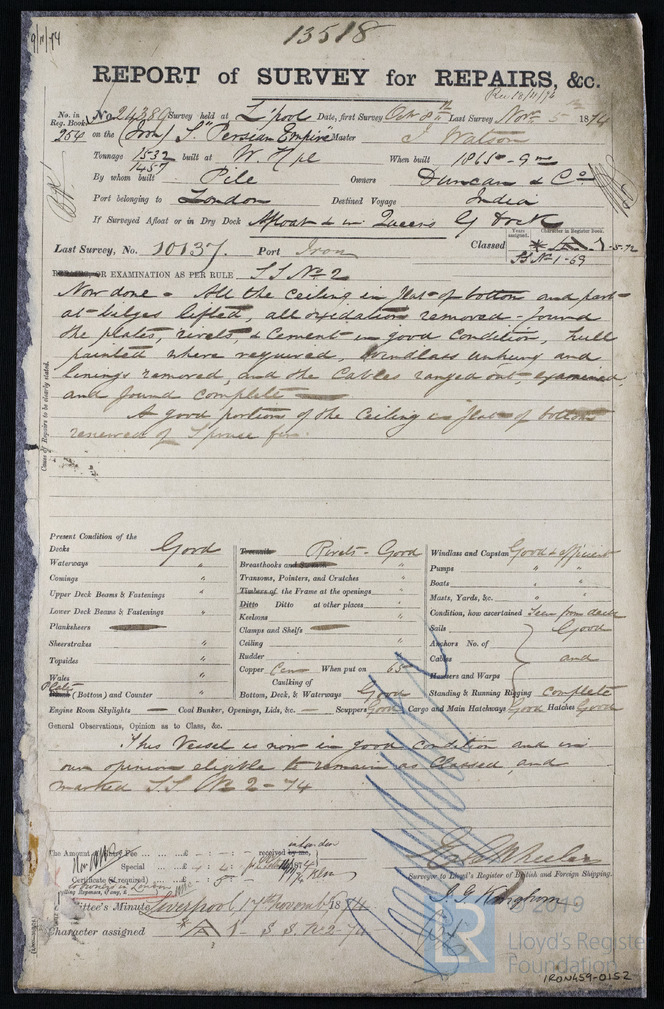 9/11/74
13518
REPORT of SURVEY for REPAIRS, &c.
Rec 18/11/74
No. in Reg. Book No 24386 Survey held at L'pool Date, first Survey Octr 8th Last Survey Novr 5th 1874
254 on the (Iron) S "Persian Empire" Master J. Watson
Tonnage 1532 built at W. Hpl When built 1865 - 9 m
1457
By whom built Pile Owners Duncan & Co
Port belonging to London Destined Voyage India
If Surveyed Afloat or in Dry Dock Afloat & in Queens G Dock
Years assigned. Character in Register Book.
Last Survey, No. 10137. Port Iron Classed A 1 - 5-72
SS No 1-69
REPAIRS, OR EXAMINATION AS PER RULE S S No 2
Now done - All the ceiling in flat of bottom and part
at bilges lifted, all oxidation removed - found
the plates, rivets, & Cement in good condition, hull
painted where required, windlass unhung and
linings removed, and the Cables ranged out, examined,
and found complete
A good portion of the Ceiling in flat of bottom
renewed of Spruce fir
Cause of Repairs to be clearly stated.
Present Condition of the
Decks Good
Waterways "
Comings "
Upper Deck Beams & Fastenings "
Lower Deck Beams & Fastenings "
Planksheers
Sheerstrakes "
Topsides "
Wales "
Plates (Bottom) and Counter "
Treenails Rivets - Good
Breasthooks and "
Transoms, Pointers, and Crutches "
Timbers of the Frame at the openings "
Ditto Ditto at other places "
Keelsons "
Clamps and Shelfs
Ceiling "
Rudder "
Copper Cem When put on 65
Caulking of
Bottom, Deck, & Waterways Good
Windlass and Capstan Good & efficient
Pumps " "
Boats " "
Masts, Yards, &c. " "
Condition, how ascertained Seen from deck
Sails Good
Anchors No. of
Cables and
Hawsers and Warps
Standing & Running Rigging complete
Engine Room Skylights — Coal Bunker, Openings, Lids, &c. — Scuppers Good Cargo and Main Hatchways Good Hatches Good
General Observations, Opinion as to Class, &c.
This Vessel is now in good condition and in
our opinion eligible to remain as Classed, and
marked S S No 2 - 74
The Amount of Entry Fee ... £ : : received by me,
in London
Special ... £
Certificate (if required) ... £ 5
Surveyor to Lloyd's Register of British and Foreign Shipping.
J. G. Kinghorn
Committee's Minute Liverpool, 17th November 1874
Character assigned A 1 - S S. No 2-74
© 2019
LR
Lloyd's Register
Foundation
IRON459-0152